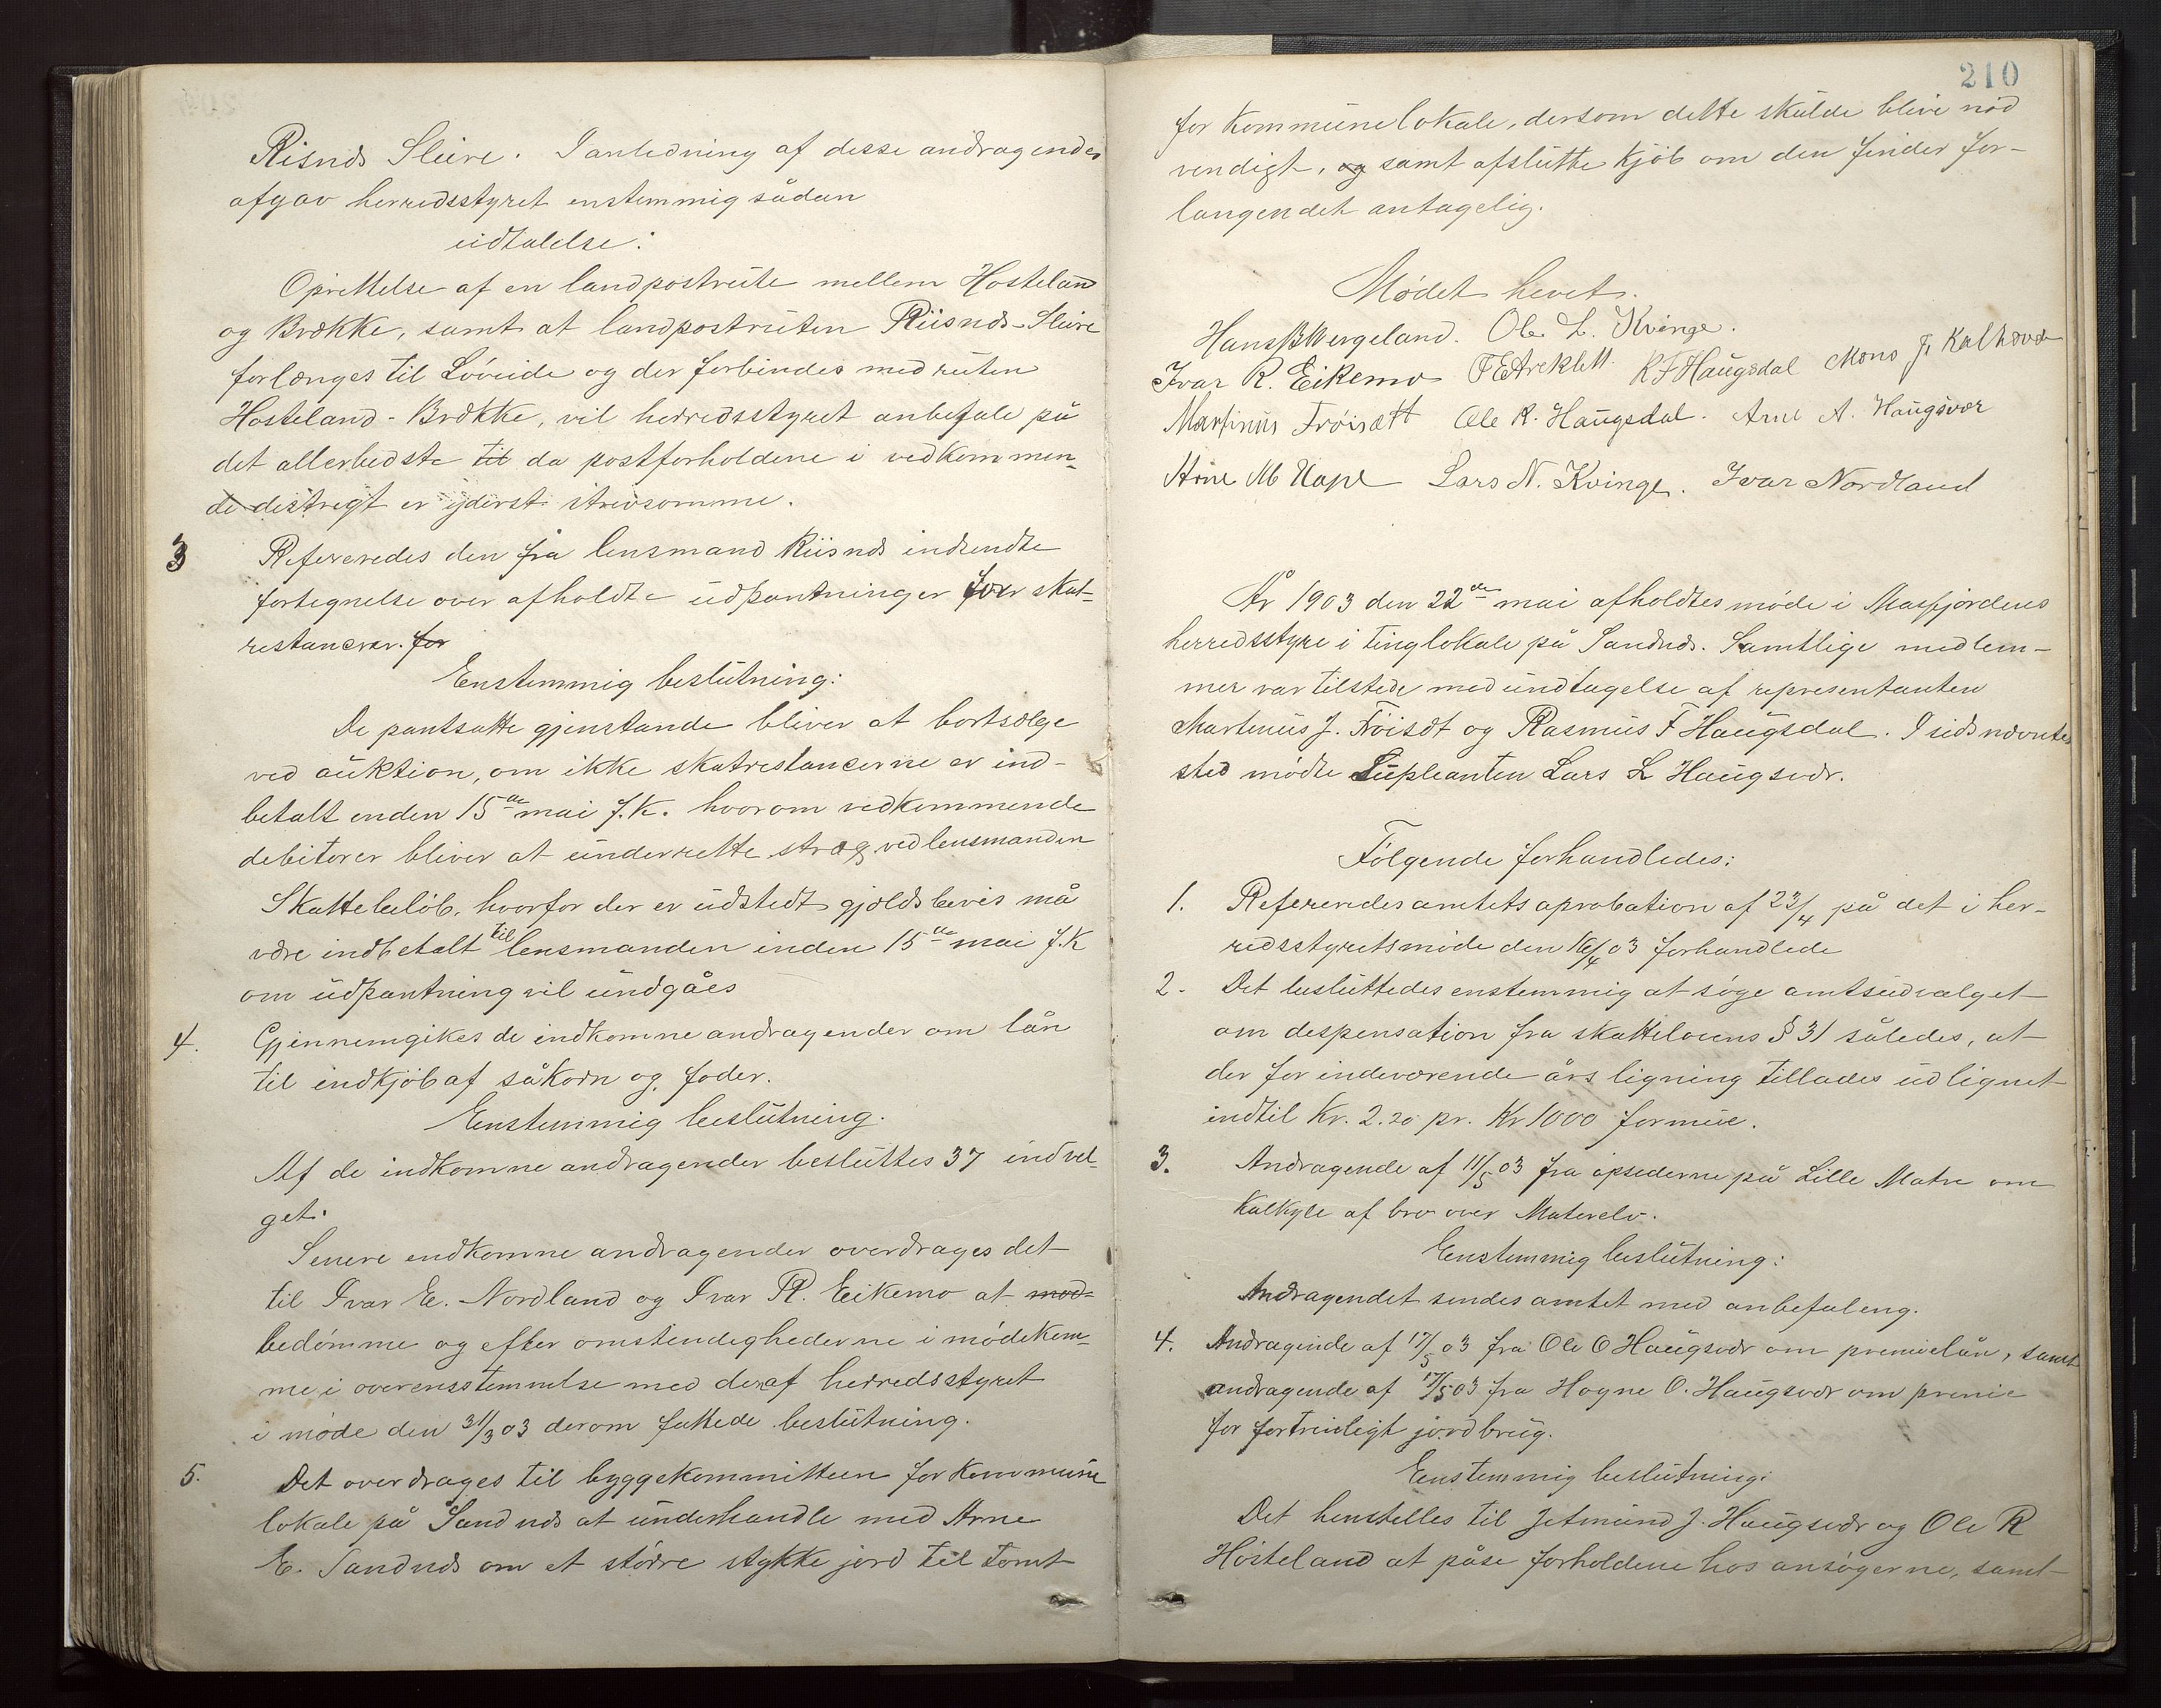 Risnds Sleire. I anledning af desse andragender
afgav herredsstyret enstemmig sådan
udtalelse:
Oprettelse af en landpostrute mellem Hosteland
og Brække, samt at landpostruten Riisnds-Sleire
forlænges til Løveide og der forbindes med ruten
Hosteland-Brække, vil herredsstyret anbefale på
det allerbedste til da postforholdene i vedkommen-
de distrigt er yderst strævsomme.
3 Refereredes den fra lensmand Riisnds indsendte
fortegnelse over afholdte udpantninger for skat-
restancer. for
Enstemmig beslutning:
De pantsatte gjenstande bliver at bortsælge
ved auktion, om ikke skatrestancerne er ind-
betalt enden 15de mai f.k. hvorom vedkommende
debitorer bliver at underrette strag ved lensmanden
Skattebeløb, hvorfor der er udstedt gjeldsbevis må
være indbetalt til lensmanden inden 15de mai f.k
om udpantning vil undgåes
4. Gjennemgikes de indkomne andragender om lån
til indkjøb af såkorn og foder.
Enstemmig beslutning.
Af de indkomne andragender besluttes 37 indvel-
get.
Senere endkomne andragender overdrages det
til Ivar E. Nordland og Ivar R. Eikemo at mød-
bedømme og efter omstendighederne i mødekom-
me i overensstemmelse med den af herredsstyret
i møde den 31/3 03 derom fattede beslutning.
5. Det overdrages til byggekommitteen for kommune
lokale på Sandnds at underhandle med Arne
E. Sandnds om et større stykke jord til tomt
210
for kommunelokale, dersom dette skulde blive nød
vendigt, og samt afslutte kjøb om den finder for-
langendet antagelig.
Mødet hevet.
Hans B Wergeland. Ole L. Kvinge.
Ivar R. Eikemo R F Haugsdal Mons J. Kalhovde
Martinus Frøisætt Ole R. Haugsdal. Arne A. Haugsvær
Lars N. Kvinge. Ivar Nordland
År 1903 den 22de mai afholdtes møde i Masfjordens
herredsstyre i tinglokale på Sandnds. Samtlige medlem-
mer var tilstede med undtagelse af representanten
Martinus J. Frøisdt og Rasmus F Haugsdal. I sidsnævntes
sted mødte Supleanten Lars L Haugsvdr.
Følgende forhandledes:
1. Refereredes amtets aprobation af 23/4 på det i her-
redsstyretsmøde den 16/4 03 forhandlede
2. Det besluttedes enstemmig at søge amtsudvalget
om despensation fra skattelovens § 31 således, at
der for indeværende års ligning tillades udlignet
indtil Kr. 2.20 pr. Kr 1000 formue.
3. Andragende af 11/5 03 fra opsederne på Lille Matre om
kalkyle af bro over Matreelv.
Enstemmig beslutning:
Andragendet sendes amtet med anbefaleng.
4. Andragende af 17/5 03 fra Ole O Haugsvdr om premielån, samt
andragende af 17/5 03 fra Hogne O. Haugsvdr om premie
for fortrinligt jordbrug.
Enstemmig beslutning:
Det henstelles til Jetmund J. Haugsvdr og Ole R
Hosteland at påse forholdene hos ansøgerne, samt